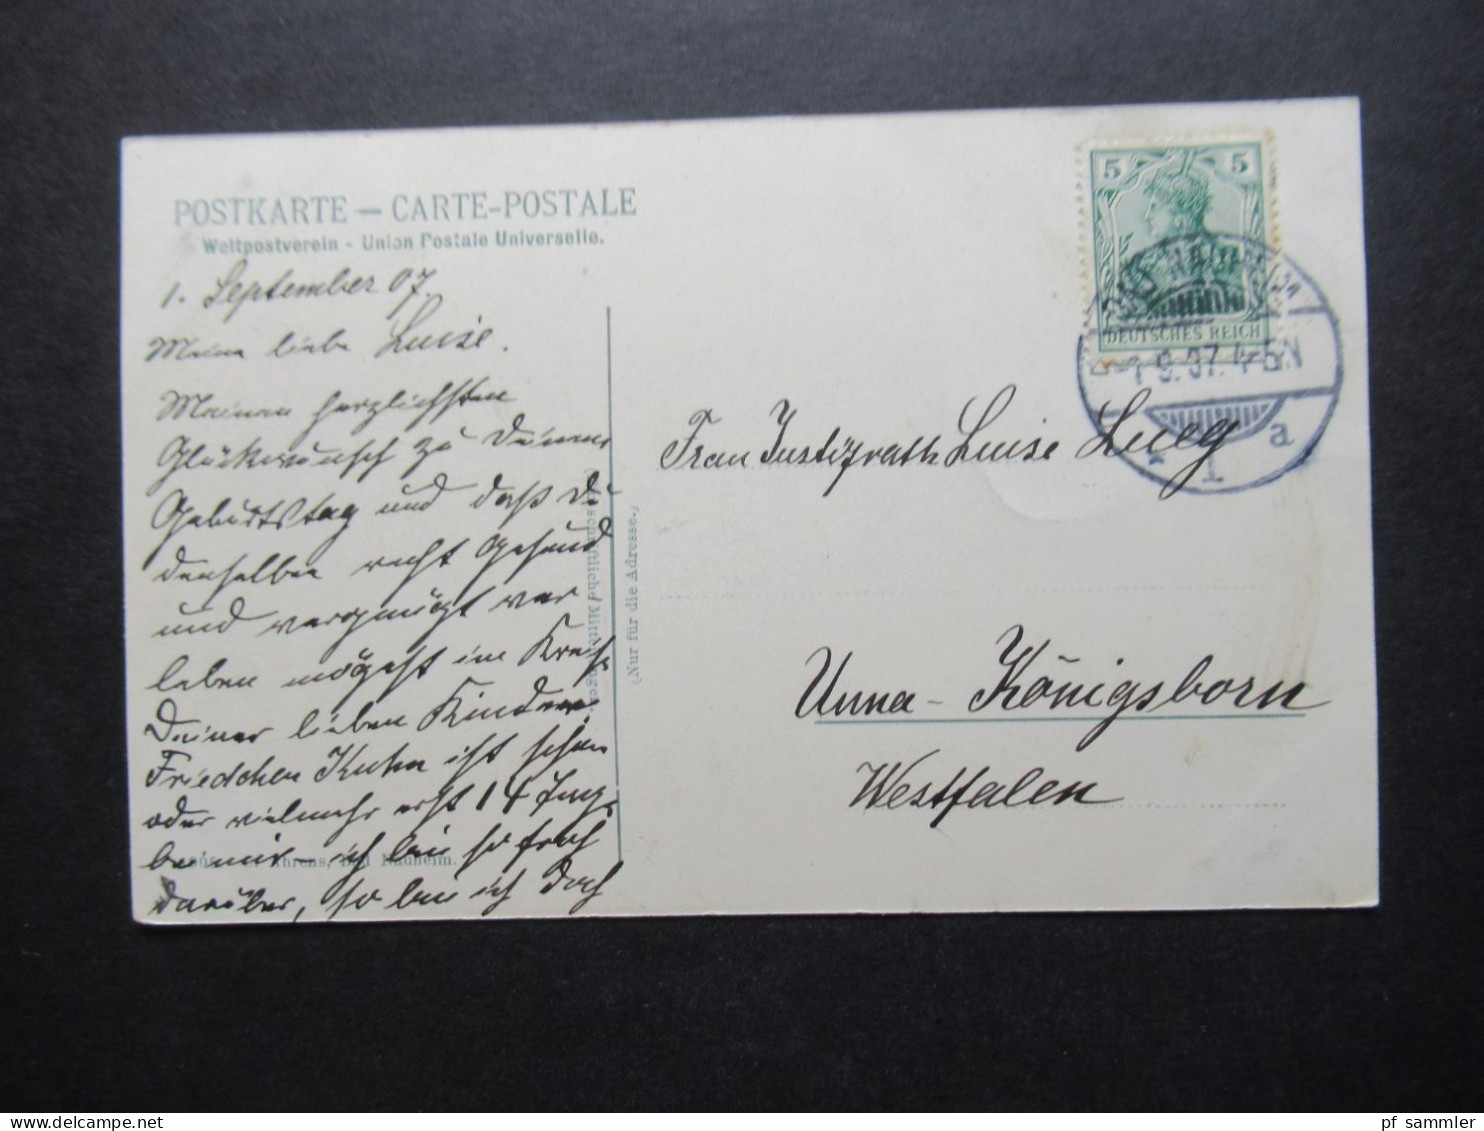 POSTKARTE — CARTE-POSTALE
Weltpostverein - Union Postale Universelle.
1. September 07
Meine liebe Luise.
Meinen herzlichsten
Glückwunsch zu Deinem
Geburtstag und daß Du
denselben recht gesund
und vergnügt ver
leben mögest im Kreise
Deiner lieben Kinder.
Friedchen Kuhn ist schon
oder vielmehr erst 14 Tage
bei mir — ich bin so froh
darüber, so bin ich doch
Ahrens, Bad Nauheim.
(Nur für die Adresse.)
5 5
DEUTSCHES REICH
BAD-NAUHEIM
1.9.07.4-5N
1 a
Frau Justizrath Luise Lueg
Unna - Königsborn
Westfalen
pf sammler